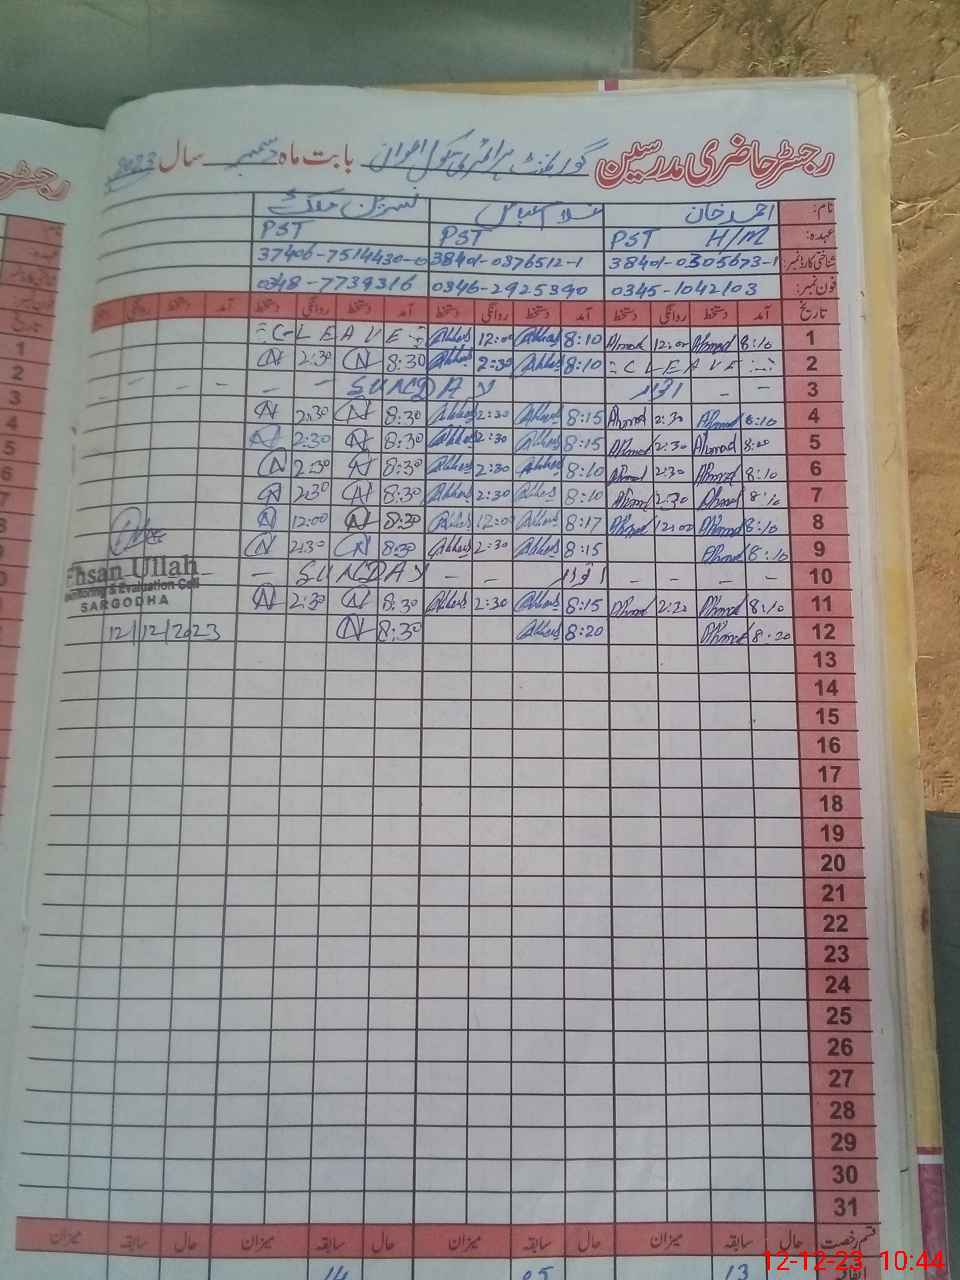 رجسٹر حاضری مدرسین گورنمنٹ پرائمری سکول اعوان بابت ماہ دسمبر سال 2023
نام: احمد خان غلام عباس نسرین
عہدہ: PST H/M PST PST
شناختی کارڈ نمبر: 38401-0305673-1 38401-0376512-1 37406-7514430-0
فون نمبر: 0345-1042103 0346-2925390 0348-7739316
تاریخ آمد دستخط روانگی دستخط آمد دستخط روانگی دستخط آمد دستخط روانگی دستخط آمد دستخط روانگی
1 8:10 Ahmad 12:00 Ahmad 8:10 Abbas 12:00 Abbas C-LEAVE
2 C LEAVE 8:10 Abbas 2:30 Abbas 8:30 N 2:30 N
3 - - اتوار SUNDAY - - - -
4 8:10 Ahmad 2:30 Ahmad 8:15 Abbas 2:30 Abbas 8:30 N 2:30 N
5 8:20 Ahmad 2:30 Ahmad 8:15 Abbas 2:30 Abbas 8:30 N 2:30 N
6 8:10 Ahmad 2:30 Ahmad 8:10 Abbas 2:30 Abbas 8:30 N 2:30 N
7 8:10 Ahmad 2:30 Ahmad 8:10 Abbas 2:30 Abbas 8:30 N 2:30 N
8 8:10 Ahmad 12:00 Ahmad 8:17 Abbas 12:00 Abbas 8:30 N 12:00 N
9 8:10 Ahmad 8:15 Abbas 2:30 Abbas 8:30 N 2:30 N
10 - - - - اتوار - - SUNDAY - -
Ehsan Ullah
Monitoring & Evaluation Cell
SARGODHA
11 8:10 Ahmad 2:30 Ahmad 8:15 Abbas 2:30 Abbas 8:30 N 2:30 N
12 8:20 Ahmad 8:20 Abbas 8:30 N 12/12/2023
13
14
15
16
17
18
19
20
21
22
23
24
25
26
27
28
29
30
31
قسم رخصت حال سابقہ میزان حال سابقہ میزان حال سابقہ میزان حال سابقہ میزان
13 05 14
12-12-23, 10:44